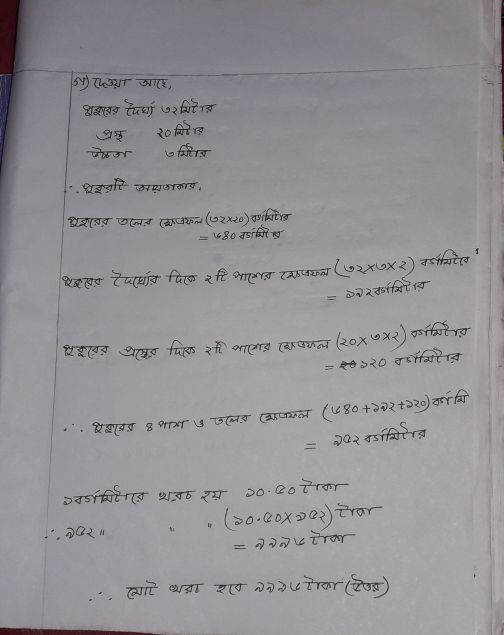 গ) দেওয়া আছে,
পুকুরের দৈর্ঘ্য ৩২ মিটার
প্রস্থ ২০ মিটার
উচ্চতা ৩ মিটার
∴ পুকুরটি আয়তাকার,
পুকুরের তলের ক্ষেত্রফল (৩২×২০) বর্গমিটার
= ৬৪০ বর্গমিটার
পুকুরের দৈর্ঘ্যের দিকে ২টি পাশের ক্ষেত্রফল (৩২×৩×২) বর্গমিটার
= ১৯২ বর্গমিটার
পুকুরের প্রস্থের দিকে ২টি পাশের ক্ষেত্রফল (২০×৩×২) বর্গমিটার
= ১২০ বর্গমিটার
∴ পুকুরের ৪ পাশ ও তলের ক্ষেত্রফল (৬৪০+১৯২+১২০) বর্গ মি
= ৯৫২ বর্গমিটার
১ বর্গমিটারে খরচ হয় ১০.৫০ টাকা
∴ ৯৫২ " " " (১০.৫০×৯৫২) টাকা
= ৯৯৯৬ টাকা
∴ মোট খরচ হবে ৯৯৯৬ টাকা (উত্তর)